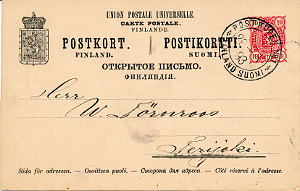 UNION POSTALE UNIVERSELLE.
CARTE POSTALE.
FINLANDE.
POSTKORT. POSTIKORTTI.
FINLAND. SUOMI.
ОТКРЫТОЕ ПИСЬМО.
ФИНЛЯНДІЯ.
10
FINLAND SUOMI
Herr
W. Törnroos
Terijoki
Sida för adressen. — Osoitteen puoli. — Сторона для адреса. — Côté réservé à l'adresse.